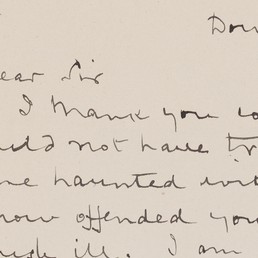 Dow
ear Sir
I thank you co
uld not have tr
me haunted with
now offended you
ugh ill. I am